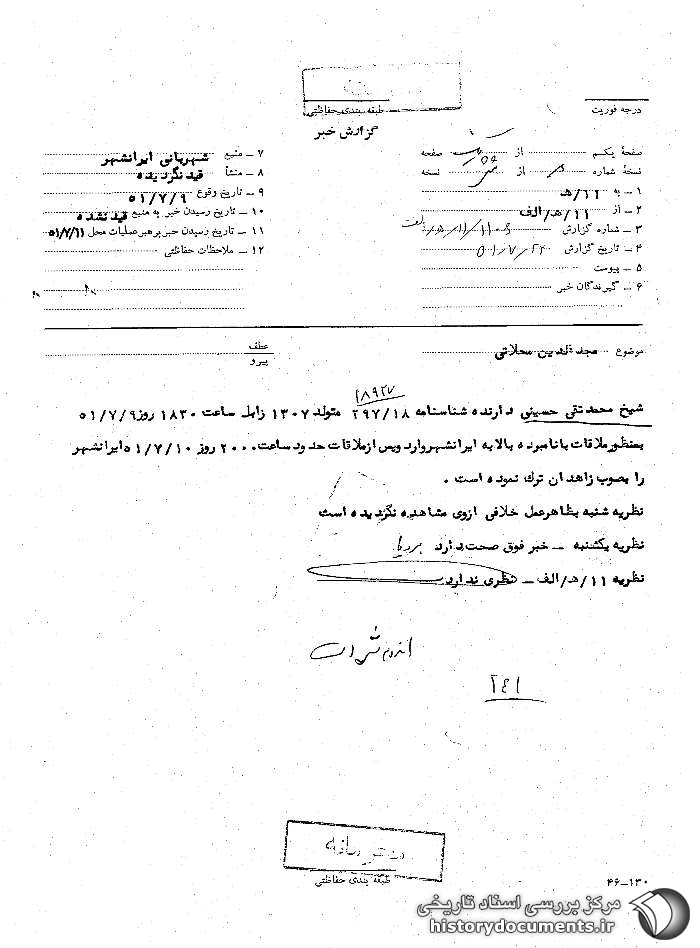 طبقه بندی حفاظتی
درجه فوریت
گزارش خبر
صفحهٔ یکم از یک صفحه
نسخهٔ شماره از نسخه
۱ – به ۱۱/هـ
۲ – از ۱۱/هـ/الف
۳ – شماره گزارش
۴ – تاریخ گزارش ۵۱/۷/۲۴
۵ – پیوست
۶ – گیرندگان خبر
۷ – منبع شهربانی ایرانشهر
۸ – منشأ قید نگردیده
۹ – تاریخ وقوع ۵۱/۷/۹
۱۰ – تاریخ رسیدن خبر به منبع قید نشده
۱۱ – تاریخ رسیدن خبر برهبر عملیات محل ۵۱/۷/۱۱
۱۲ – ملاحظات حفاظتی
موضوع مجدالدین محلاتی
عطف
پیرو
۲۸۹۲۷
شیخ محمدتقی حسینی دارنده شناسنامه ۲۹۷/۱۸ متولد ۱۳۰۷ زابل ساعت ۱۸۳۰ روز ۵۱/۷/۹
بمنظور ملاقات با نامبرده بالا به ایرانشهر وارد و پس از ملاقات حدود ساعت ۲۰۰۰ روز ۵۱/۷/۱۰ ایرانشهر
را بصوب زاهدان ترک نموده است .
نظریه شنبه بظاهر عمل خلافی ازوی مشاهده نگردیده است
نظریه یکشنبه – خبر فوق صحت دارد
نظریه ۱۱/هـ/الف – نظری ندارد
۲۴۱
طبقه بندی حفاظتی
۴۶–۱۳۰
مرکز بررسی اسناد تاریخی
historydocuments.ir